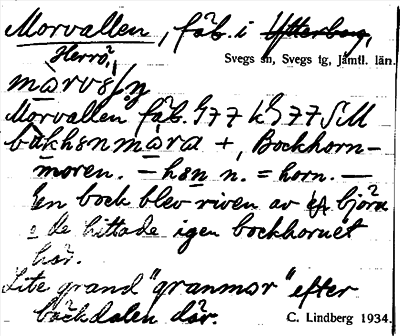 Morvallen, fäb. i Ytterberg,
Herrö,
Svegs sn, Svegs tg, Jämtl. län.
Morvallen fäb. G77 kG77SM
bakhonmora +, Bockhorn-
moren. — hon n. = horn. —
En bock blev riven av björn
o de hittade igen bockhornet
här.
Lite grand "granmor" efter
bäckdalen där.
C. Lindberg 1934.